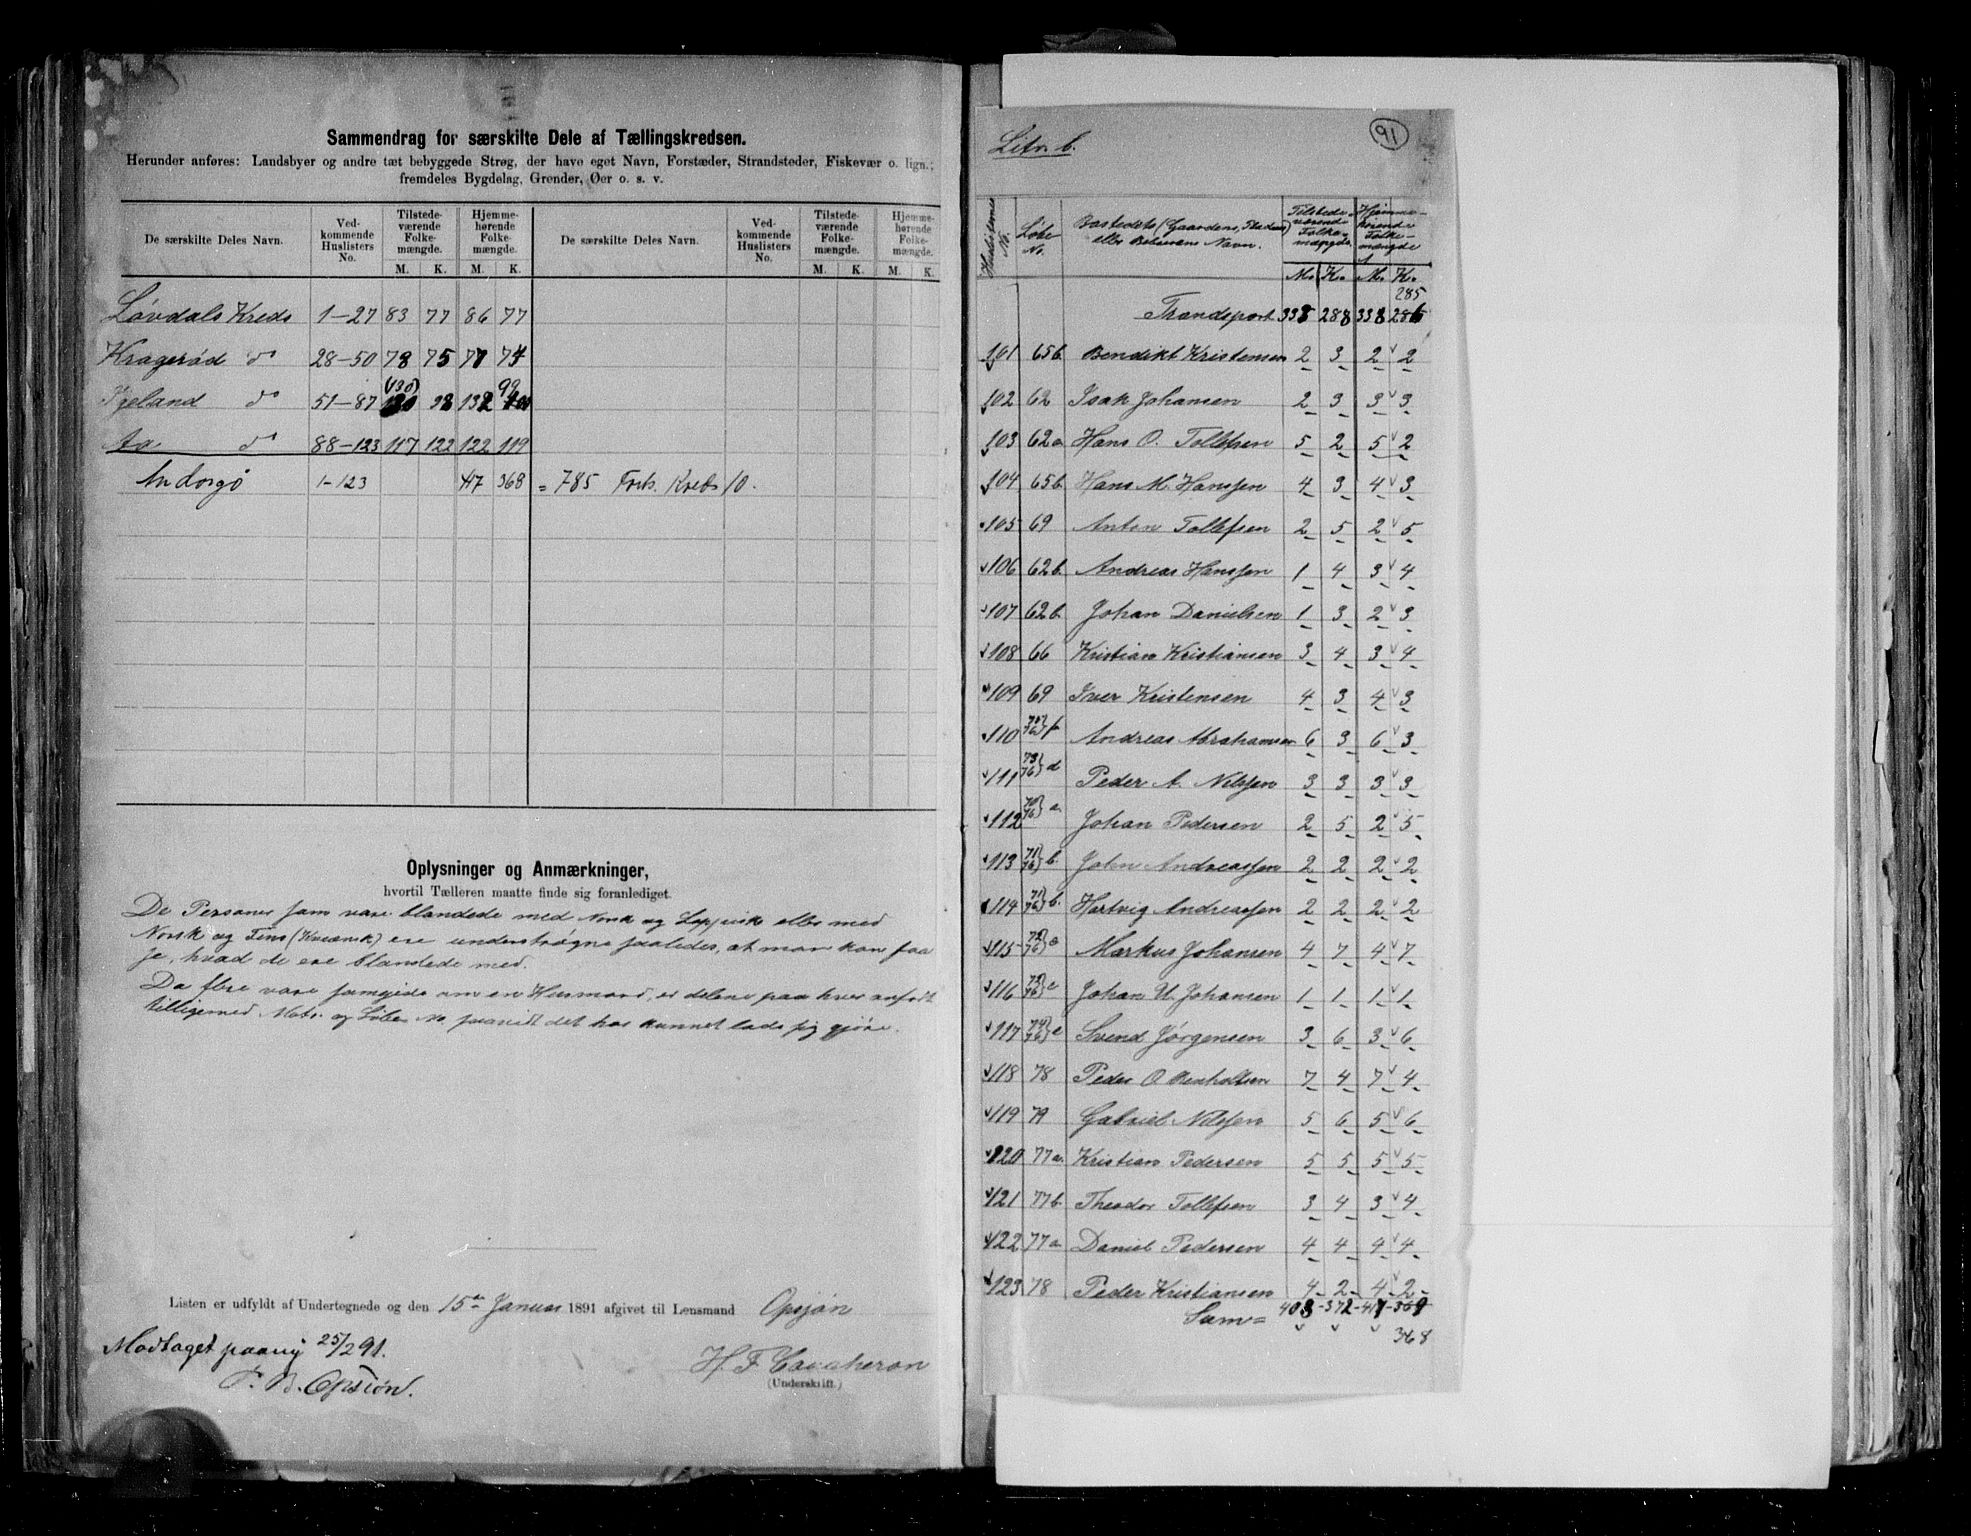 Sammendrag for særskilte Dele af Tællingskredsen.
Herunder anføres: Landsbyer og andre tæt bebyggede Strøg, der have eget Navn, Forstæder, Strandsteder, Fiskevær o. lign.;
fremdeles Bygdelag, Grender, Øer o. s. v.
De særskilte Deles Navn. Ved-kommende Huslisters No. Tilstede-værende Folke-mængde. Hjemme-hørende Folke-mængde. De særskilte Deles Navn. Ved-kommende Huslisters No. Tilstede-værende Folke-mængde. Hjemme-hørende Folke-mængde.
M. K. M. K. M. K. M. K.
Løvdals Kreds 1-27 83 77 86 77
Kragerød do 28-50 78 75 77 74
Kjeland do 51-87 130 98 132 99
Aa do 88-123 117 122 122 119
Andorgö 1-123 417 368 = 785 Kreds 10.
Oplysninger og Anmærkninger,
hvortil Tælleren maatte finde sig foranlediget.
De Personer som vare blandede med Norsk og Lappisk eller med
Norsk og Fins (Kvænsk) ere understrøgne saaledes, at man kan faa
se, hvad de ere blandede med.
Da flere vare samgide om en Husmand, er delene paa hver anført
tilligemed Matr. og Løbe No saavidt det har kunnet lade sig gjøre.
Listen er udfyldt af Undertegnede og den 15de Januar 1891 afgivet til Lensmand Opsjøn
Modtaget paany 25/2 91.
P. B. Opsiøn.
H. F.
(Underskrift.)
91
Litr. b.
Huslisternes No. Løbe No. Bostedets (Gaardens, Pladsens) eller Beboerens Navn. Tilstedeværende Folkemængde. Hjemmehørende Folkemængde
M. K. M. K.
285
Transport 338 288 338 286
101 65b Bendikt Kristensen 2 3 2 2
102 62 Isak Johansen 2 3 3 3
103 62a Hans O. Tollefsen 5 2 5 2
104 65b Hans M. Hanssen 4 3 4 3
105 69 Anton Tollefsen 2 5 2 5
106 62b. Andreas Hanssen 1 4 3 4
107 62b. Johan Danielsen 1 3 2 3
108 66 Kristian Kristiansen 3 4 3 4
109 69 Iver Kristensen 4 3 4 3
110 Andreas Abrahamsen 6 3 6 3
111 73/76 d Peder A. Nilssen 3 3 3 3
112 70/76 a. Johan Pedersen 2 5 2 5
113 71/76 b. John Andreassen 2 2 2 2
114 71/76 b. Hartvig Andreassen 2 2 2 2
115 72/76 c Markus Johansen 4 7 4 7
116 72/76 c Johan U. Johansen 1 1 1 1
117 74/76 e Svend Jørgensen 3 6 3 6
118 78 Peder O 7 4 7 4
119 79 Gabriel Nilssen 5 6 5 6
120 77a. Kristian Pedersen 5 5 5 5
121 77b. Theodor Tollefsen 3 4 3 4
122 77a Daniel Pedersen 4 4 4 4
123 78 Peder Kristiansen 4 2 4 2
Sum = 408 - 372 - 417 - 369
368